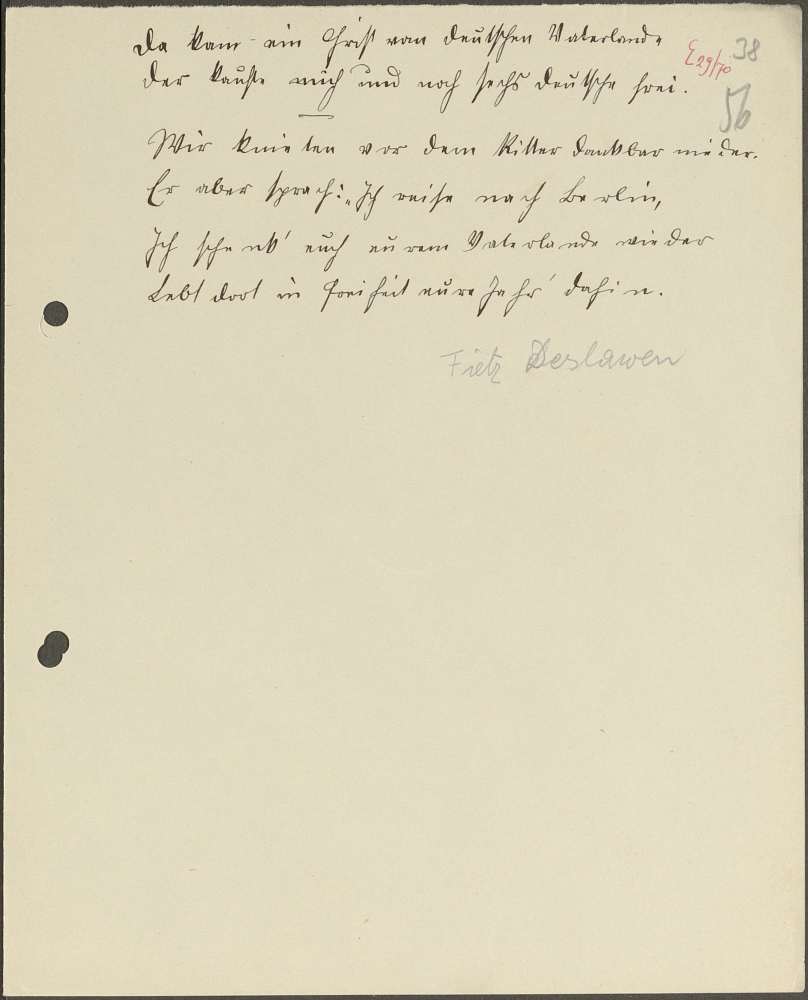 Da kam ein Christ vom deutschen Vaterlande
E 29/70 38
der kaufte mich und noch sechs Deutsche frei.
56
Wir knieten vor dem Ritter dankbar nieder.
Er aber sprach: „Ich reise nach Berlin,
Ich schenk' euch eurem Vaterlande wieder
Lebt dort in Freiheit eure Jahr' dahin.
Fietz Deslawen